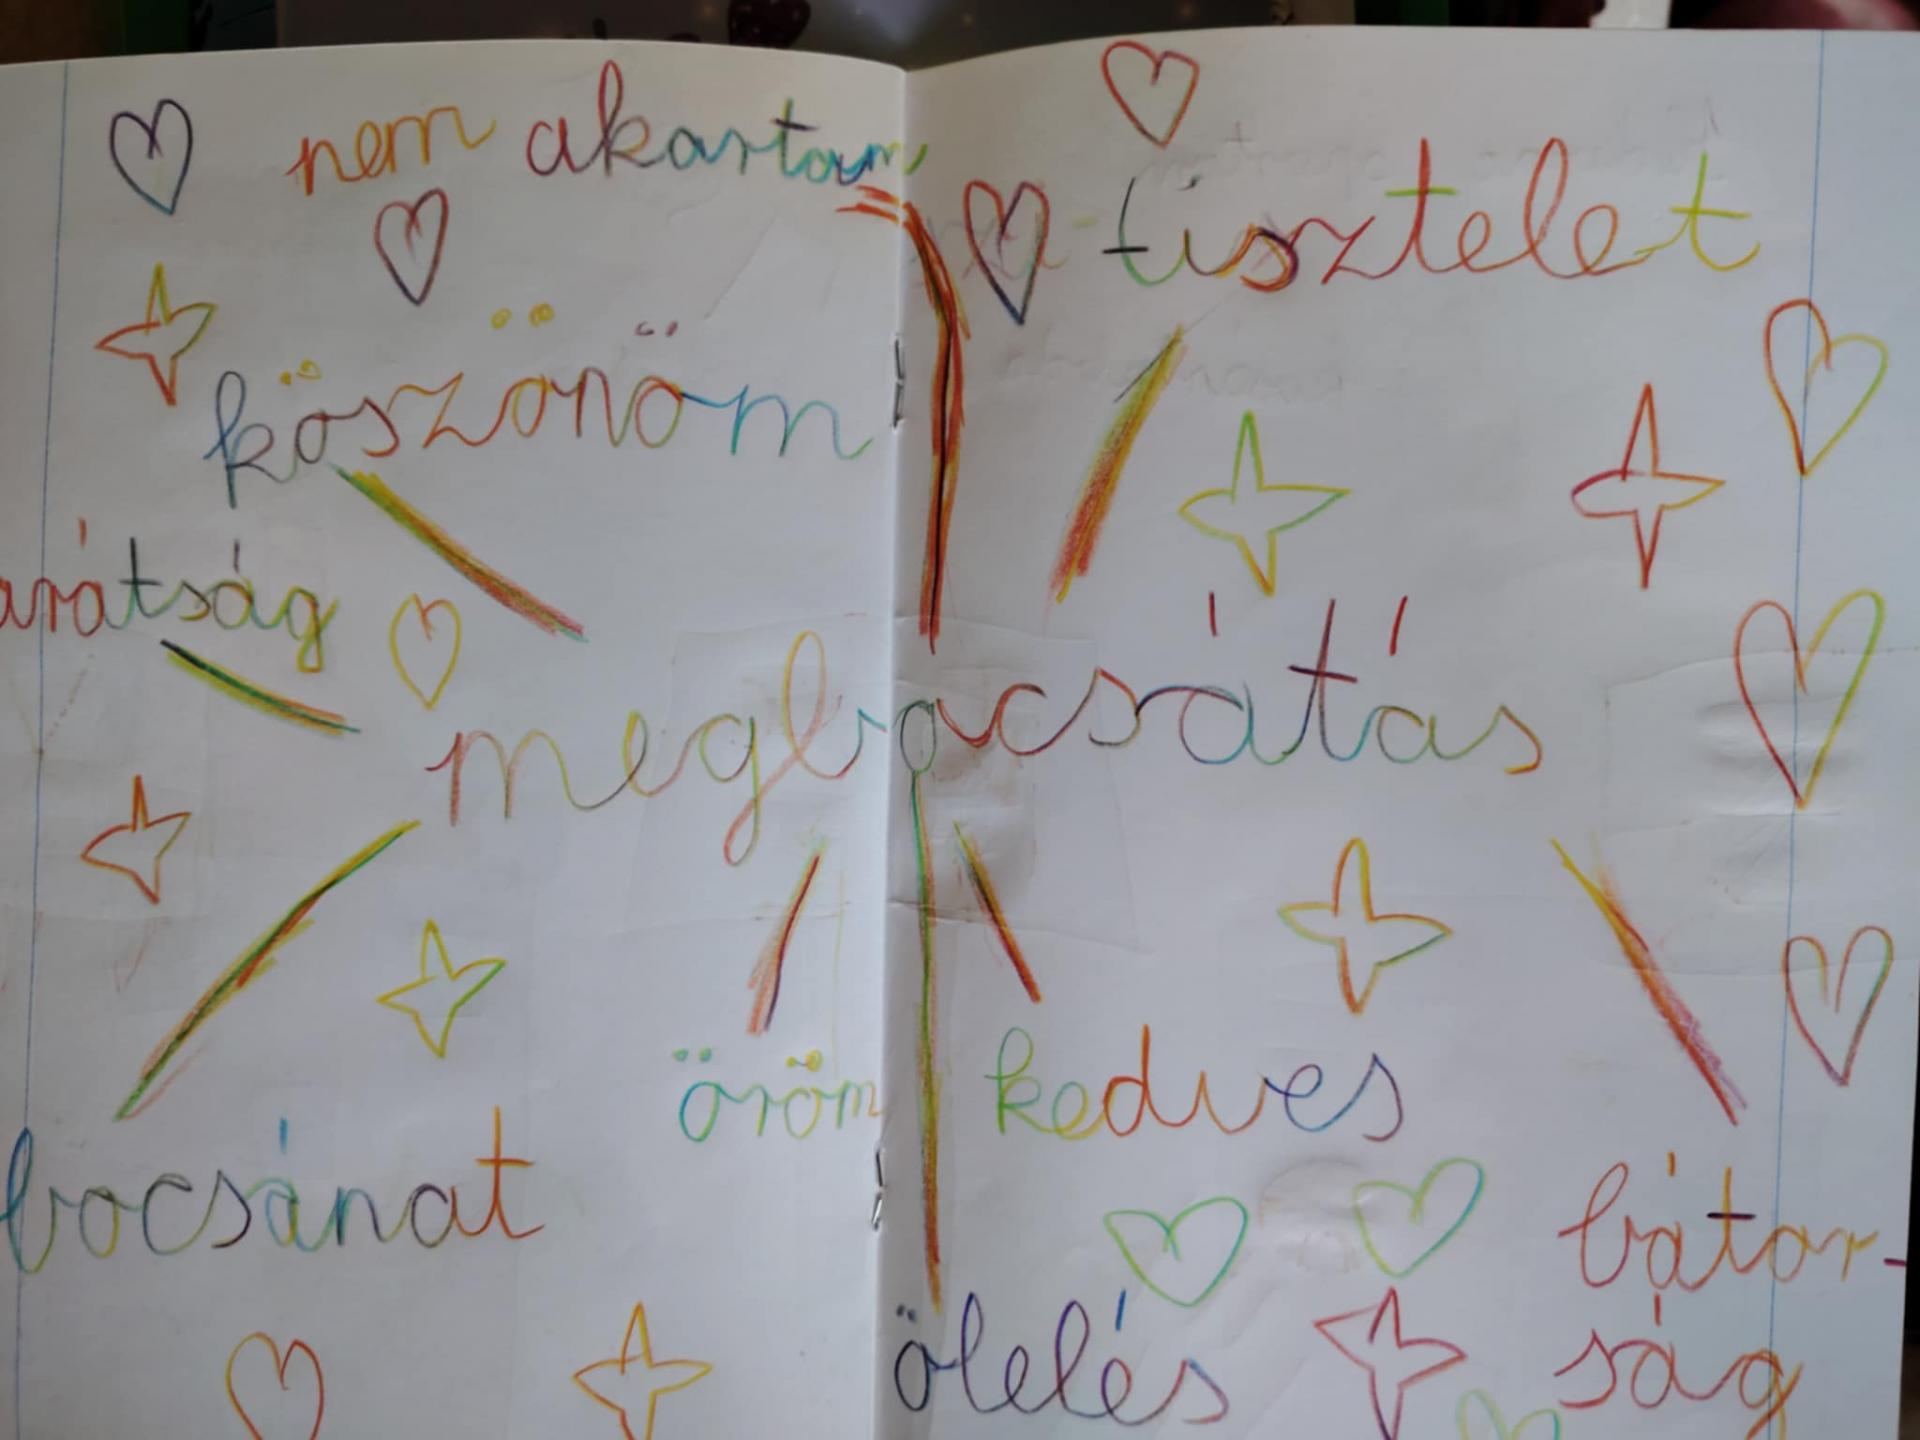 nem akartam
tisztelet
köszönöm
arátság
megbocsátás
öröm
kedves
bocsánat
bátor-
ság
ölelés